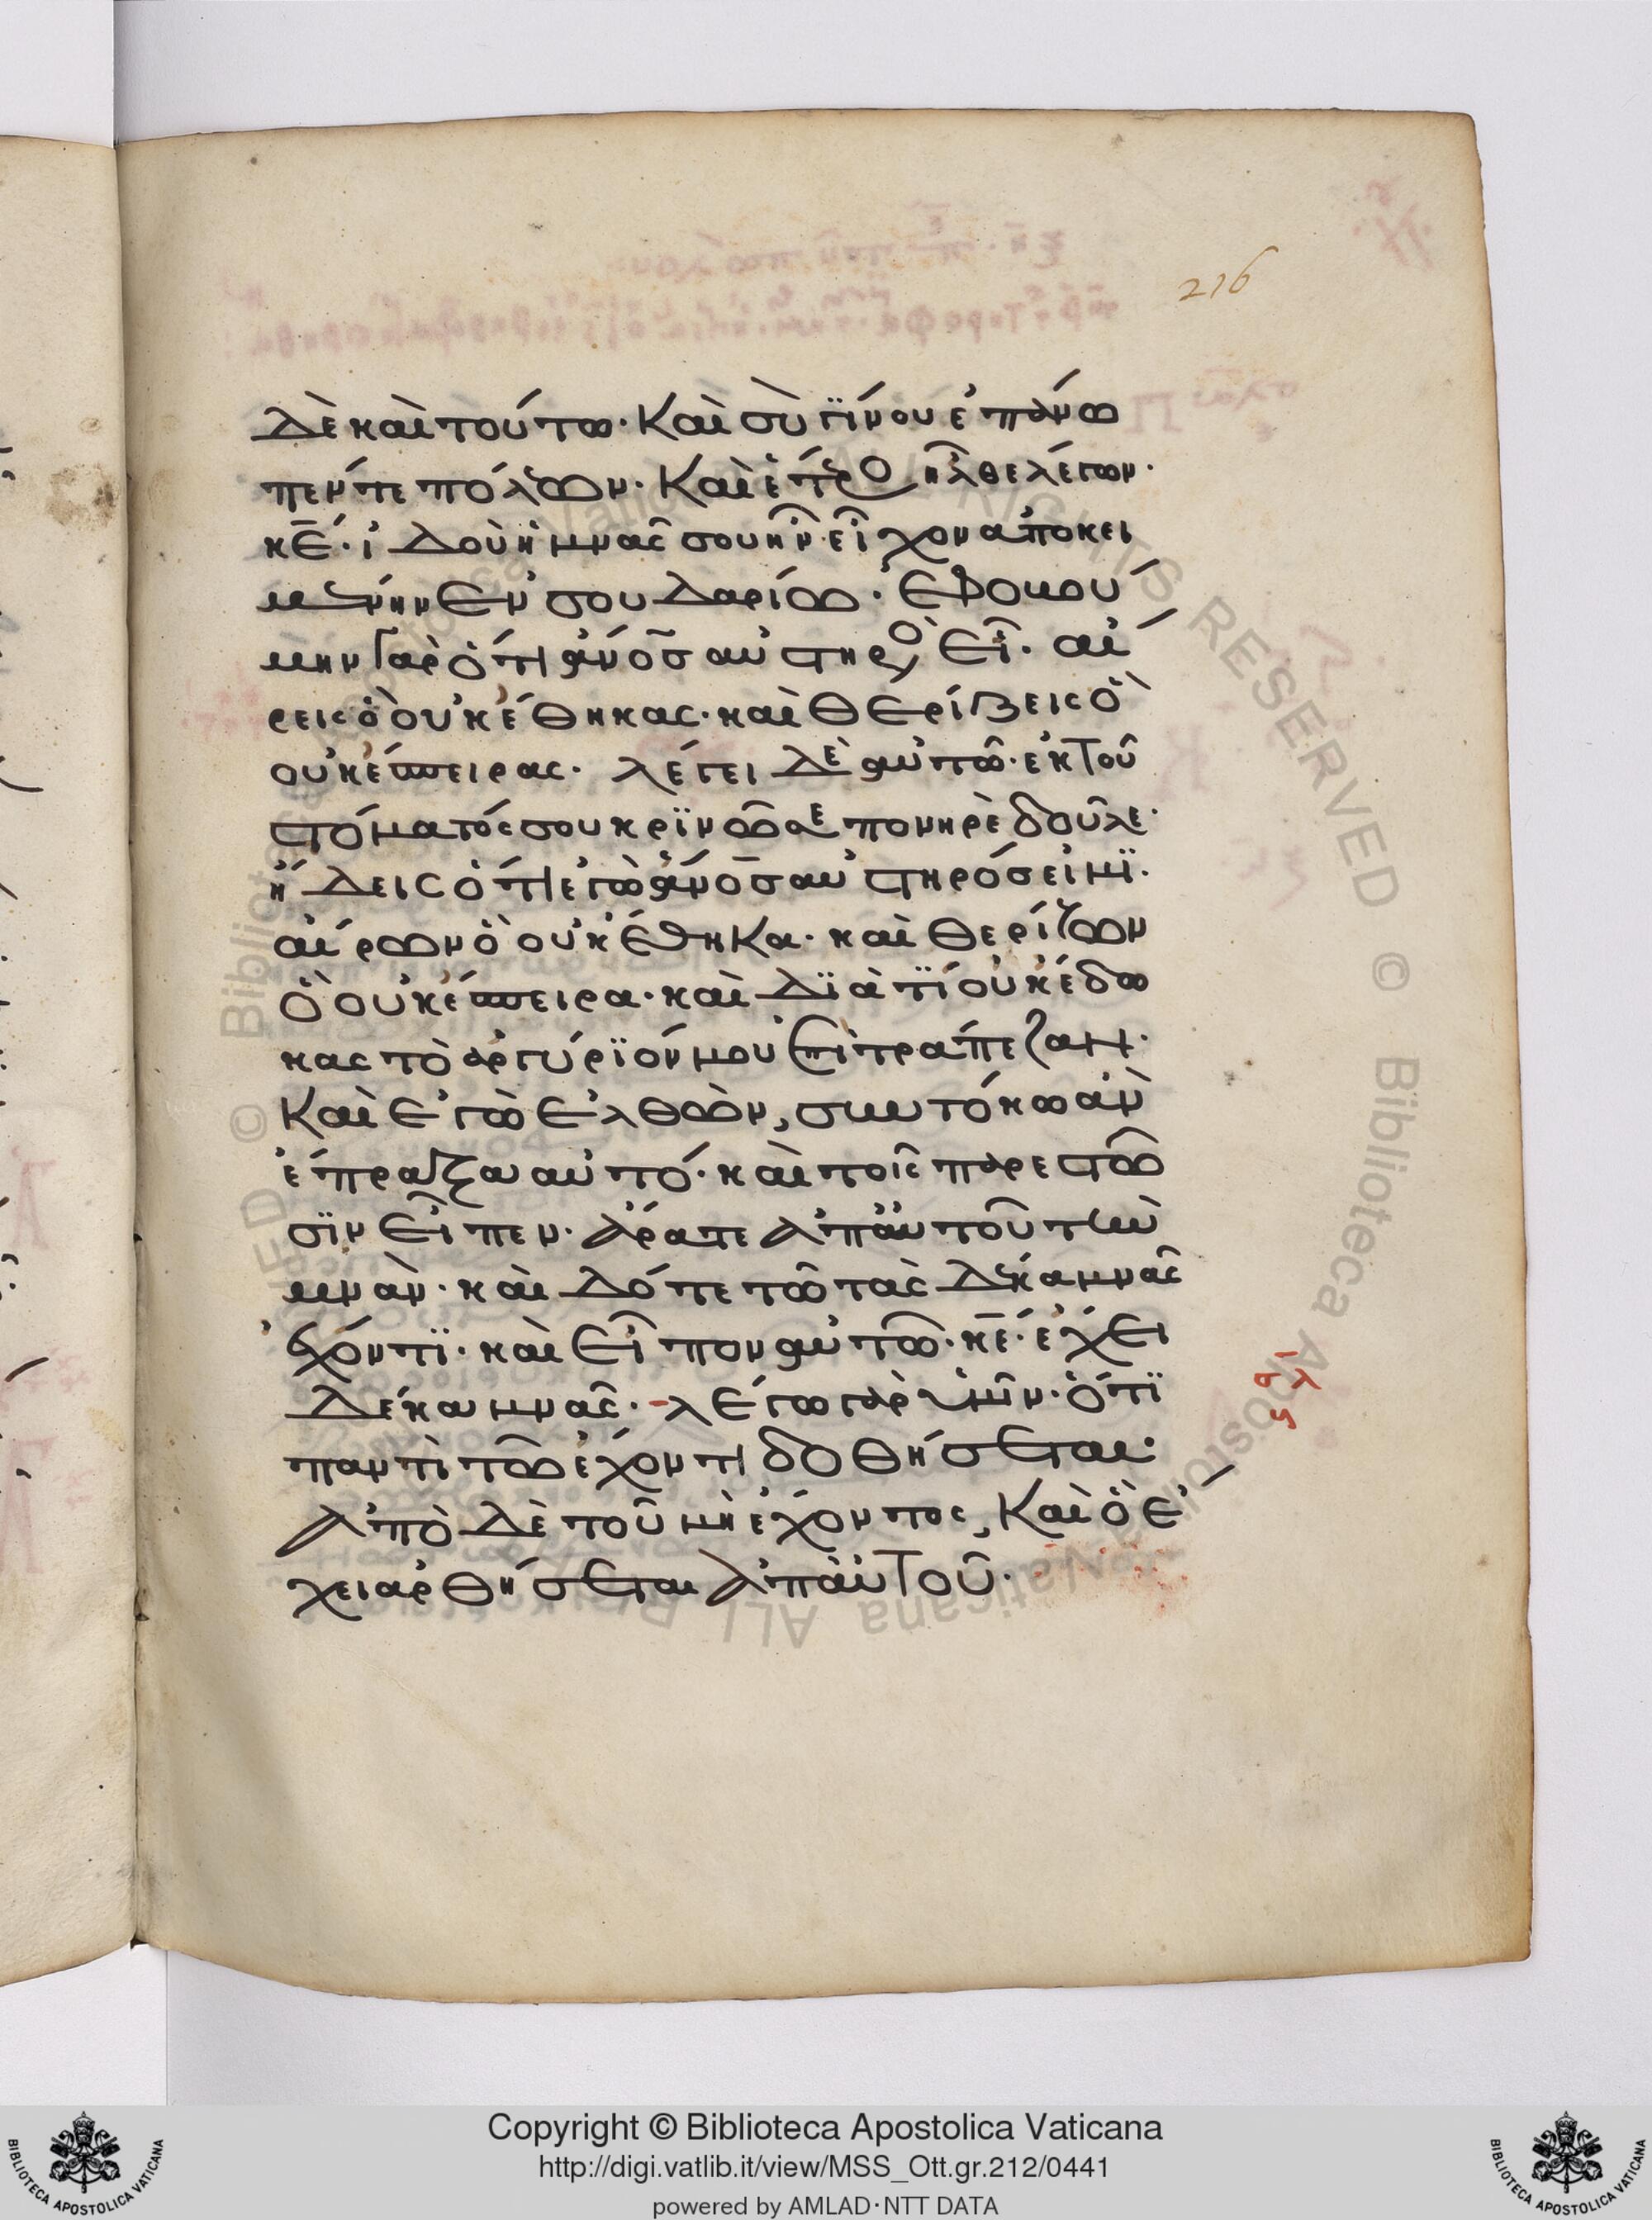 216
δὲ καὶ τούτω· Καὶ σὺ γίνου ἐπάνω
πέντε πόλεων· Καὶ ἕτερο ἦλθε λέγων·
κ̅ε̅· ἰδοὺ ἡ μνᾶς σου ἣν εἶχον ἀποκει
μένην ἐν σουδαρίω· Ἐφοβού
μην γὰρ ὅτι ἄν̅ο̅σ̅ αὐστηρὸ εἶ· αἴ
ρεις ὃ οὐκ ἔθηκας· καὶ θερίζεις ὃ
οὐκ ἔσπειρας· λέγει δὲ αὐτῶ· ἐκ τοῦ
στόματός σου κρίνω σε πονηρὲ δοῦλε·
ἤδεις ὅτι ἐγὼ ἄν̅ο̅σ̅ αὐστηρόσ εἰμϊ·
αἴρων ὃ οὐκ ἔθηκα· καὶ θερίζων
ὃ οὐκ ἔσπειρα· καὶ δϊατί οὐκ ἔδω
κας τὸ ἀργύρϊόν μου ἐπὶ τράπεζαν·
Καὶ ἐγὼ ἐλθὼν, συν τόκω ἂν
ἔπραξα αὐτό· καὶ τοῖς παρεστῶ
σϊν εἶπεν· ἄρατε ἀπ' αὐτοῦ τὴν
μνᾶν· καὶ δότε τῶ τὰς δέκα μνᾶς
ἔχοντϊ· καὶ εἶπον αὐτῶ· κ̅ε̅· ἔχει
δέκα μνᾶς· λέγω γὰρ ὑμῖν· ὅτϊ
παντὶ τῶ ἔχοντι δοθήσεται·
Ἀπὸ δὲ τοῦ μὴ ἔχοντος, Καὶ ὃ ἔ
χει ἀρθήσεται ἀπ' αὐτοῦ·
Copyright © Biblioteca Apostolica Vaticana
http://digi.vatlib.it/view/MSS_Ott.gr.212/0441
powered by AMLAD·NTT DATA
BIBLIOTECA APOSTOLICA VATICANA
BIBLIOTECA APOSTOLICA VATICANA